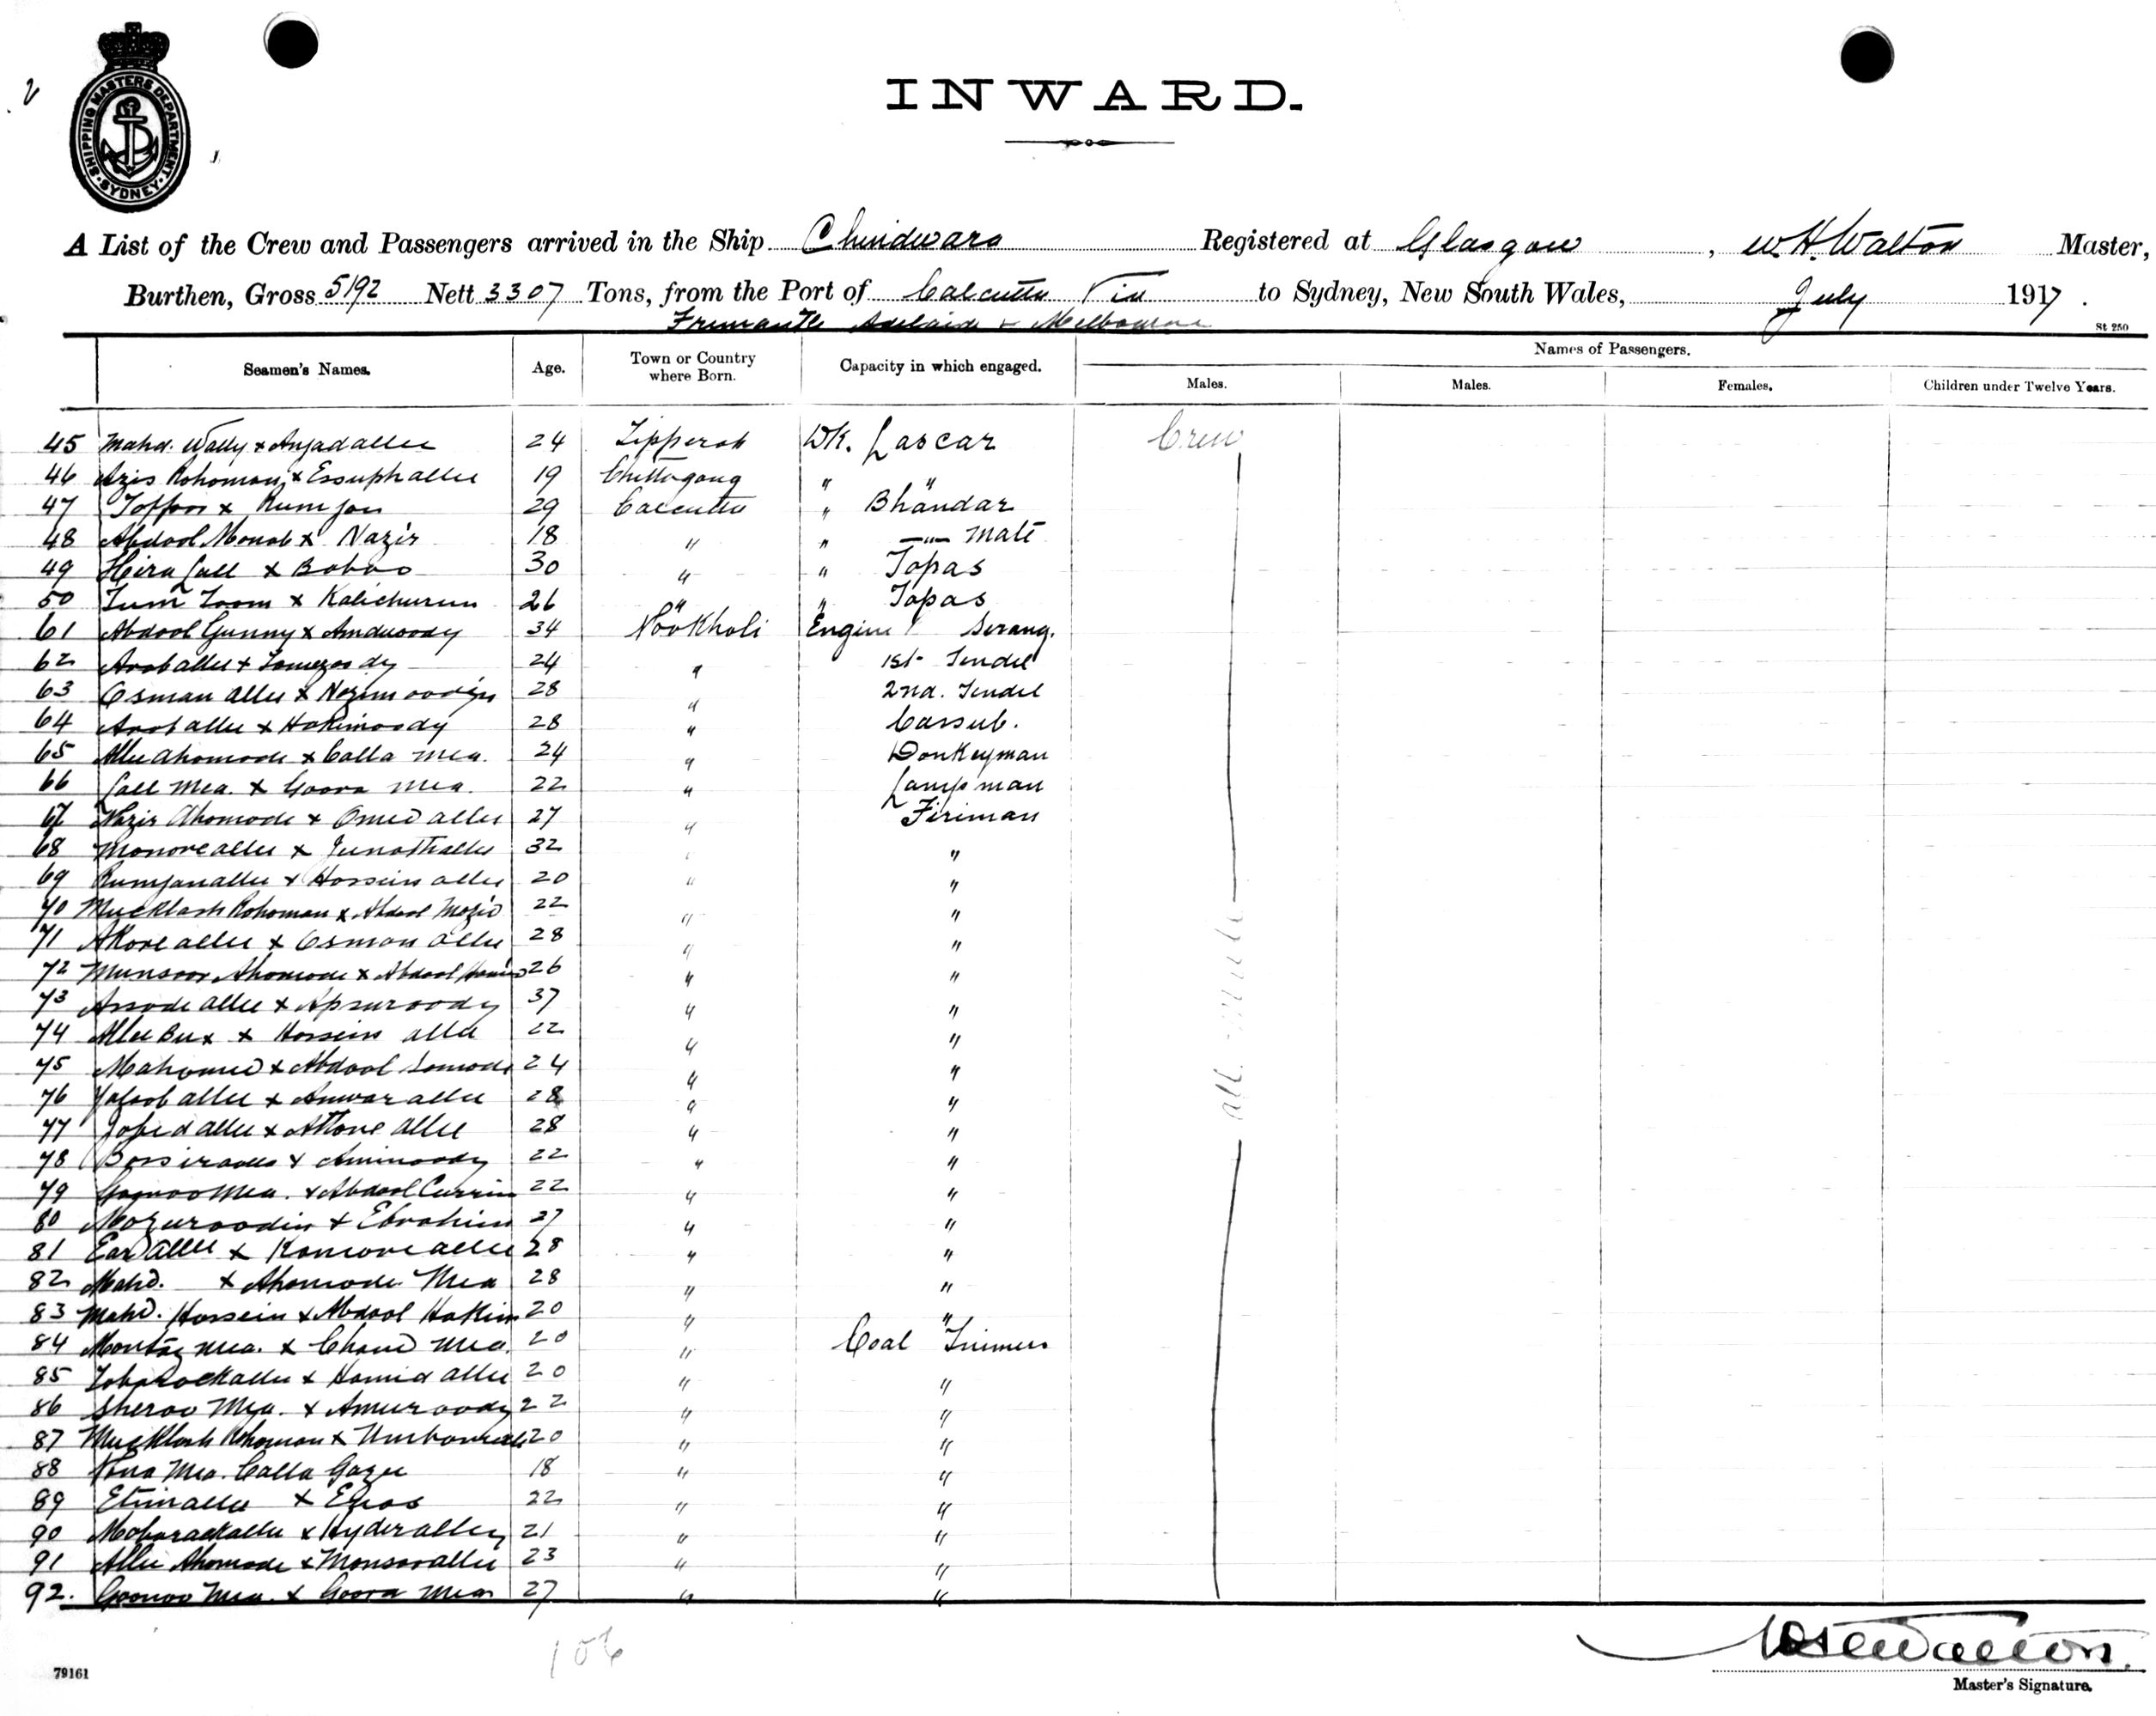 2
SHIPPING MASTERS DEPARTMENT
SYDNEY
INWARD.
A List of the Crew and Passengers arrived in the Ship Chindwara Registered at Glasgow, W.H. Walton Master,
Burthen, Gross 5192 Nett 3307 Tons, from the Port of Calcutta Via to Sydney, New South Wales, July 1917.
Fremantle Adelaide & Melbourne
St 250
Seamen's Names. Age. Town or Country where Born. Capacity in which engaged. Names of Passengers.
Males. Males. Females. Children under Twelve Years.
45 Mahd. Wally x Anjadallee 24 Tipperah DK. Lascar Crew
46 Azis Rohoman x Essuphallee 19 Chittagong " "
47 Toffoo x Rumjan 29 Calcutta " Bhandar
48 Abdool Monab x Nazir 18 " " —"— Mate
49 Hira Lall x Baboo 30 " " Topas
50 x Kalichurun 26 " " Topas
61 Abdool Gunny x Amduoody 34 Nookholi Engine Serang.
62 Arab allee x 24 " 1st Tendel
63 Osman allee x Nozimoodin 28 " 2nd. Tendel
64 Arab allee x Hakimoody 28 " Cassub.
65 Allee Ahomode x Calla Mea. 24 " Donkeyman
66 Lall Mea. x Goora Mea. 22 " Lampman
67 Nazir Ahomode x Omed allee 27 " Fireman
68 Monore allee x 32 " "
69 Rumjanallee x Hossein allee 20 " "
70 Mucklash Rohoman x Abdool Mozid 22 " "
71 Akore allee x Osman allee 28 " "
72 Munsoor Ahomode x Abdool Hamid 26 " "
73 Assode allee x Apsuroody 37 " "
74 Allee Bux x Hossein allee 22 " "
75 Mahomed x Abdool Somode 24 " "
76 x Anwar allee 28 " "
77 Jobed allee x Attore allee 28 " "
78 x Aminoody 22 " "
79 Mea. x Abdool Currim 22 " "
80 Mozuroodin x Ebrahim 27 " "
81 Ead allee x Komore allee 28 " "
82 Mahd. x Ahomode Mea 28 " "
83 Mahd. Hossein x Abdool Hakim 20 " "
84 Montaz Mea. x Chand Mea. 20 " Coal Trimmer
85 Tobarockallee x Hamid allee 20 " "
86 Sheroo Mea. x Amuroody 22 " "
87 Mucklash Rohoman x 20 " "
88 Nona Mea. Calla Gazee 18 " "
89 Etimallee x 22 " "
90 Mobarackallee x Hyderalley 21 " "
91 Allee Ahomode x Monsorallee 23 " "
92. Goonoo Mea. x Goora Mea 27 " "
106
W.H. Walton.
79161
Master's Signature.